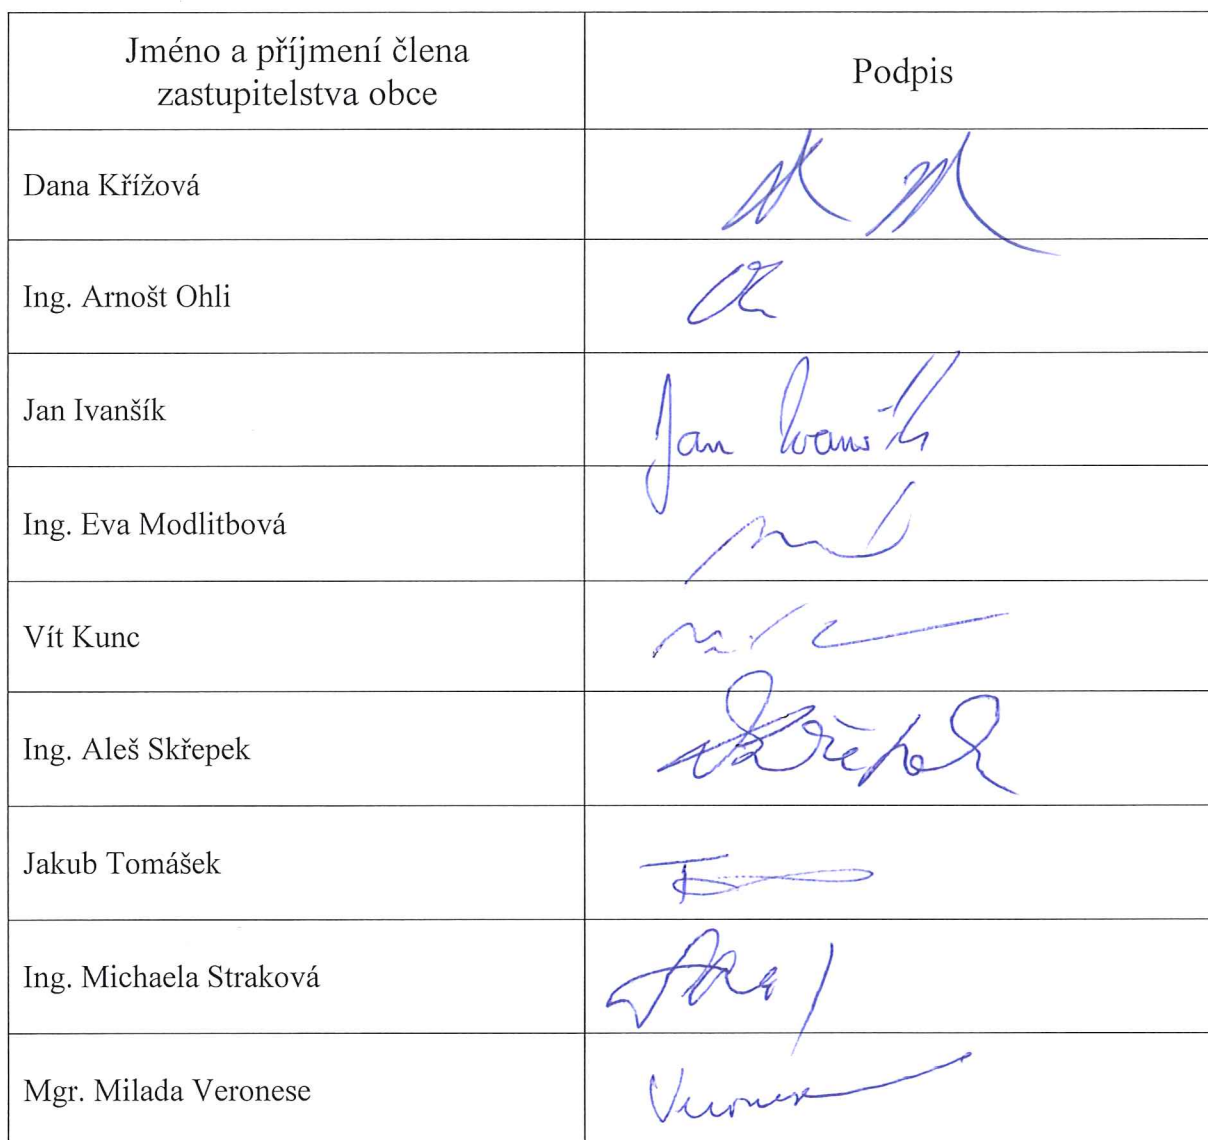 Jméno a příjmení člena
zastupitelstva obce
Podpis
Dana Křížová
Ing. Arnošt Ohli
Jan Ivanšík
Jan Ivanšík
Ing. Eva Modlitbová
Vít Kunc
Ing. Aleš Skřepek
Skřepek
Jakub Tomášek
Ing. Michaela Straková
Mgr. Milada Veronese
Veronese